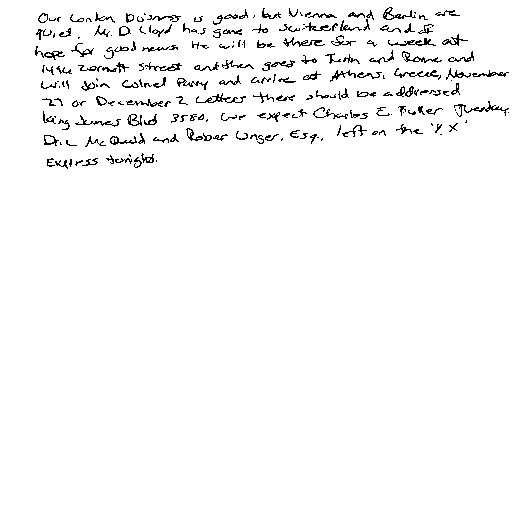 Our London Business is good, but Vienna and Berlin are
quiet. Mr. D. Lloyd has gone to Switzerland and I
hope for good news. He will be there for a week at
1496 Zermott Street and then goes to Turin and Rome and
will join Colnel Parry and arrive at Athens, Greece, November
27 or December 2. Letters there should be addressed
King James Blvd 3580. We expect Charles E. Fuller Tuesday.
Dr. L McQuaid and Robert Unger, Esq., left on the 'Y.X'
Express tonight.